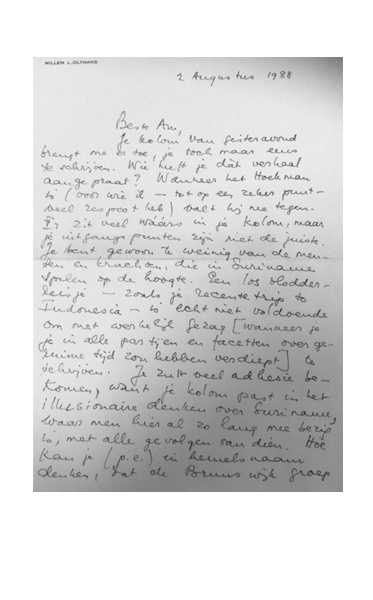 WILLEM L. OLTMANS
2 Augustus 1988
Beste Am,
Je kolom van gisteravond
brengt me er toe, je toch maar eens
te schrijven. Wie heeft je dàt verhaal
aangepraat? Wanneer het Hoekman
is (voor wie ik – tot op een zeker punt –
veel respect heb) valt hij me tegen.
Er zit veel wáárs in je kolom, maar
je uitgangspunten zijn niet de juiste.
Je bent gewoon te weinig van de men-
sen en krachten, die in Suriname
spelen op de hoogte. Een los
reisje – zoals je recente trip to
Indonesia – is echt niet voldoende
om met werkelijk gezag [wanneer je
je in alle partijen en facetten over ge-
ruime tijd zou hebben verdiept] te
schrijven. Je zult veel adhesie be-
komen, want je kolom past in het
illusionaire denken over Suriname,
waar men hier al zo lang mee bezig
is, met alle gevolgen van dien. Hoe
kan je (p.e.) in hemelsnaam
denken, dat de Brunswijk groep